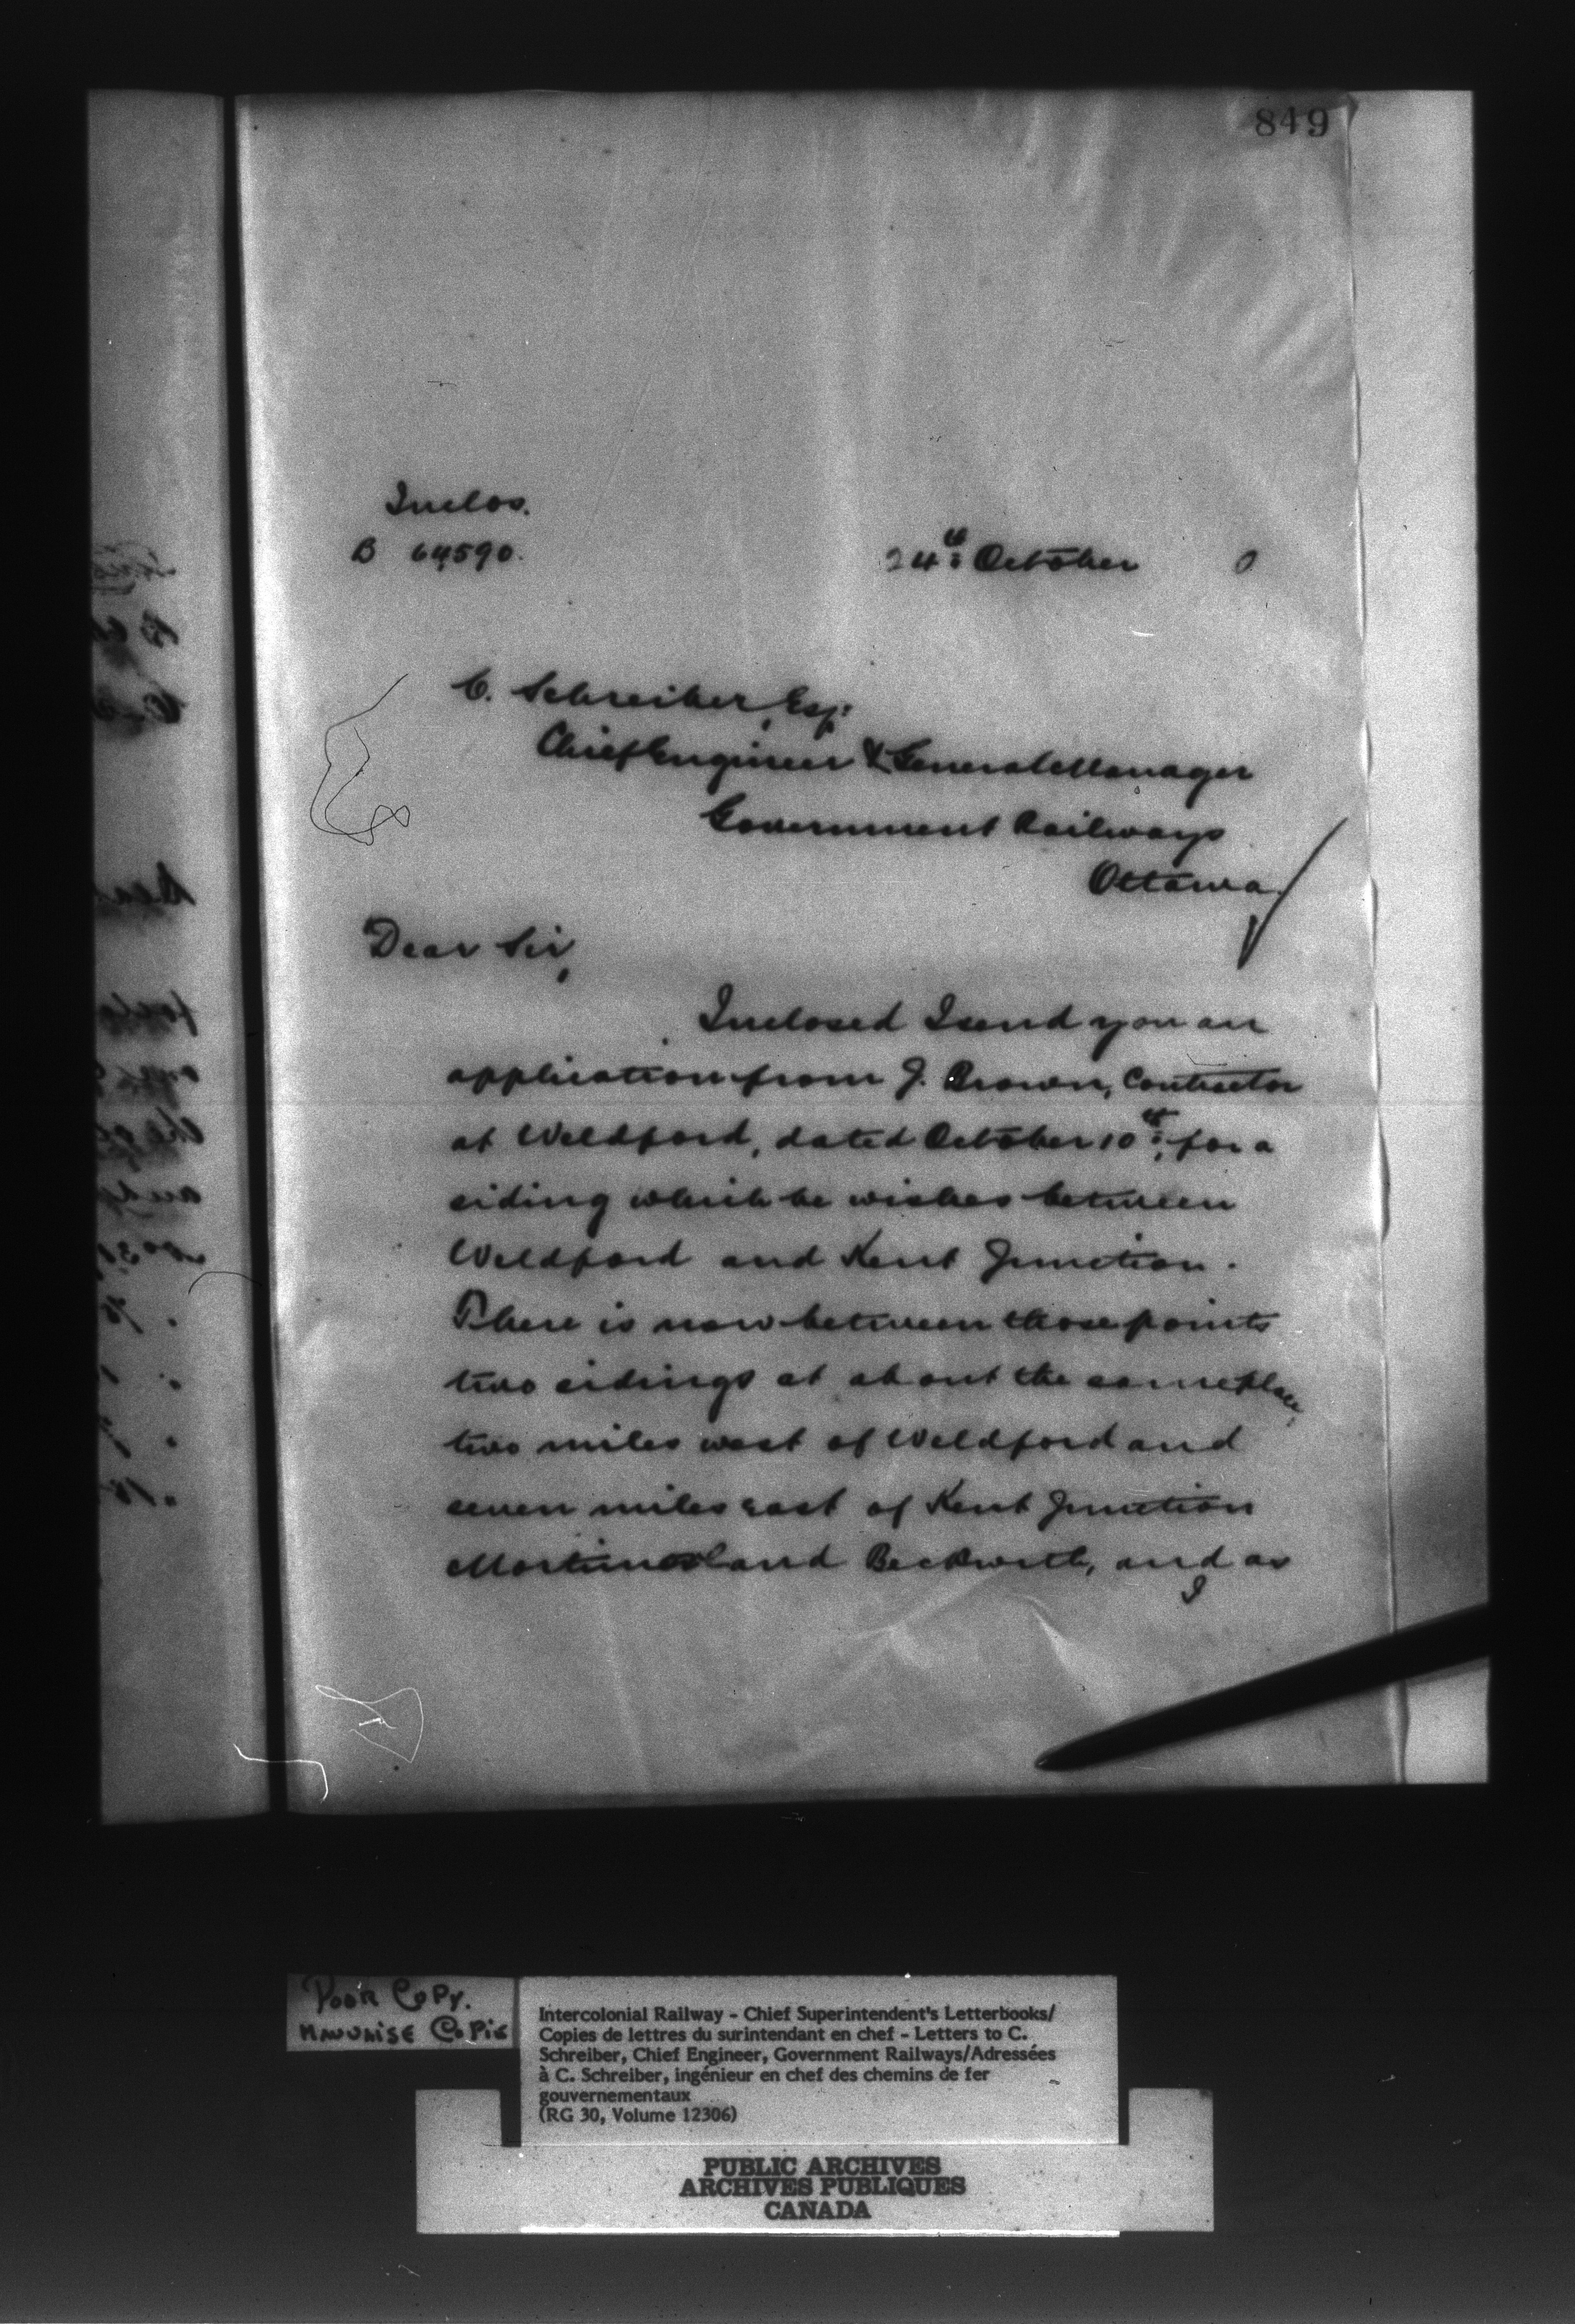 849
Inclos.
B 64590.
24th October 0
C. Schreiber, Esq:
Chief Engineer & General Manager
Government Railways
Ottawa
Dear Sir,
Inclosed I send you an
application from J. Brown, Contractor
at Weldford, dated October 10th, for a
siding which he wishes between
Weldford and Kent Junction.
There is now between those points
two sidings at about the same place,
two miles west of Weldford and
seven miles east of Kent Junction
and Beckwith, and as
I
Poor Copy.
Mauvaise Copie
Intercolonial Railway - Chief Superintendent's Letterbooks/
Copies de lettres du surintendant en chef - Letters to C.
Schreiber, Chief Engineer, Government Railways/Adressées
à C. Schreiber, ingénieur en chef des chemins de fer
gouvernementaux
(RG 30, Volume 12306)
PUBLIC ARCHIVES
ARCHIVES PUBLIQUES
CANADA